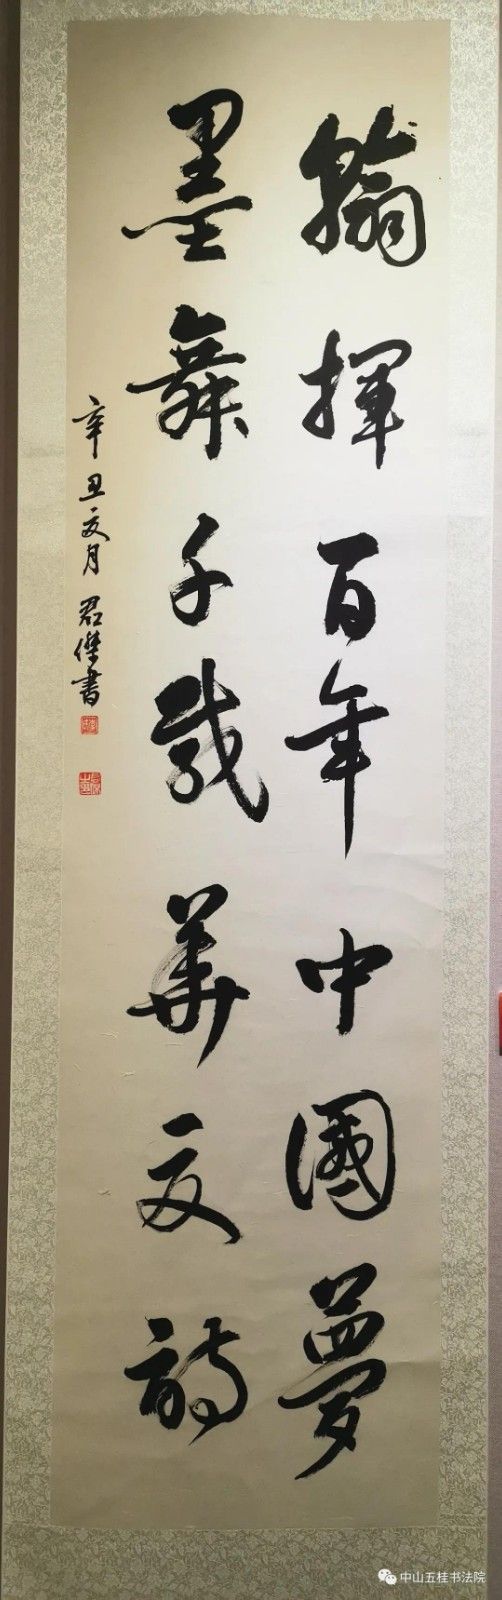 翰揮百年中國夢
墨舞千載華夏詩
辛丑夏月 君傑書
中山五桂书法院